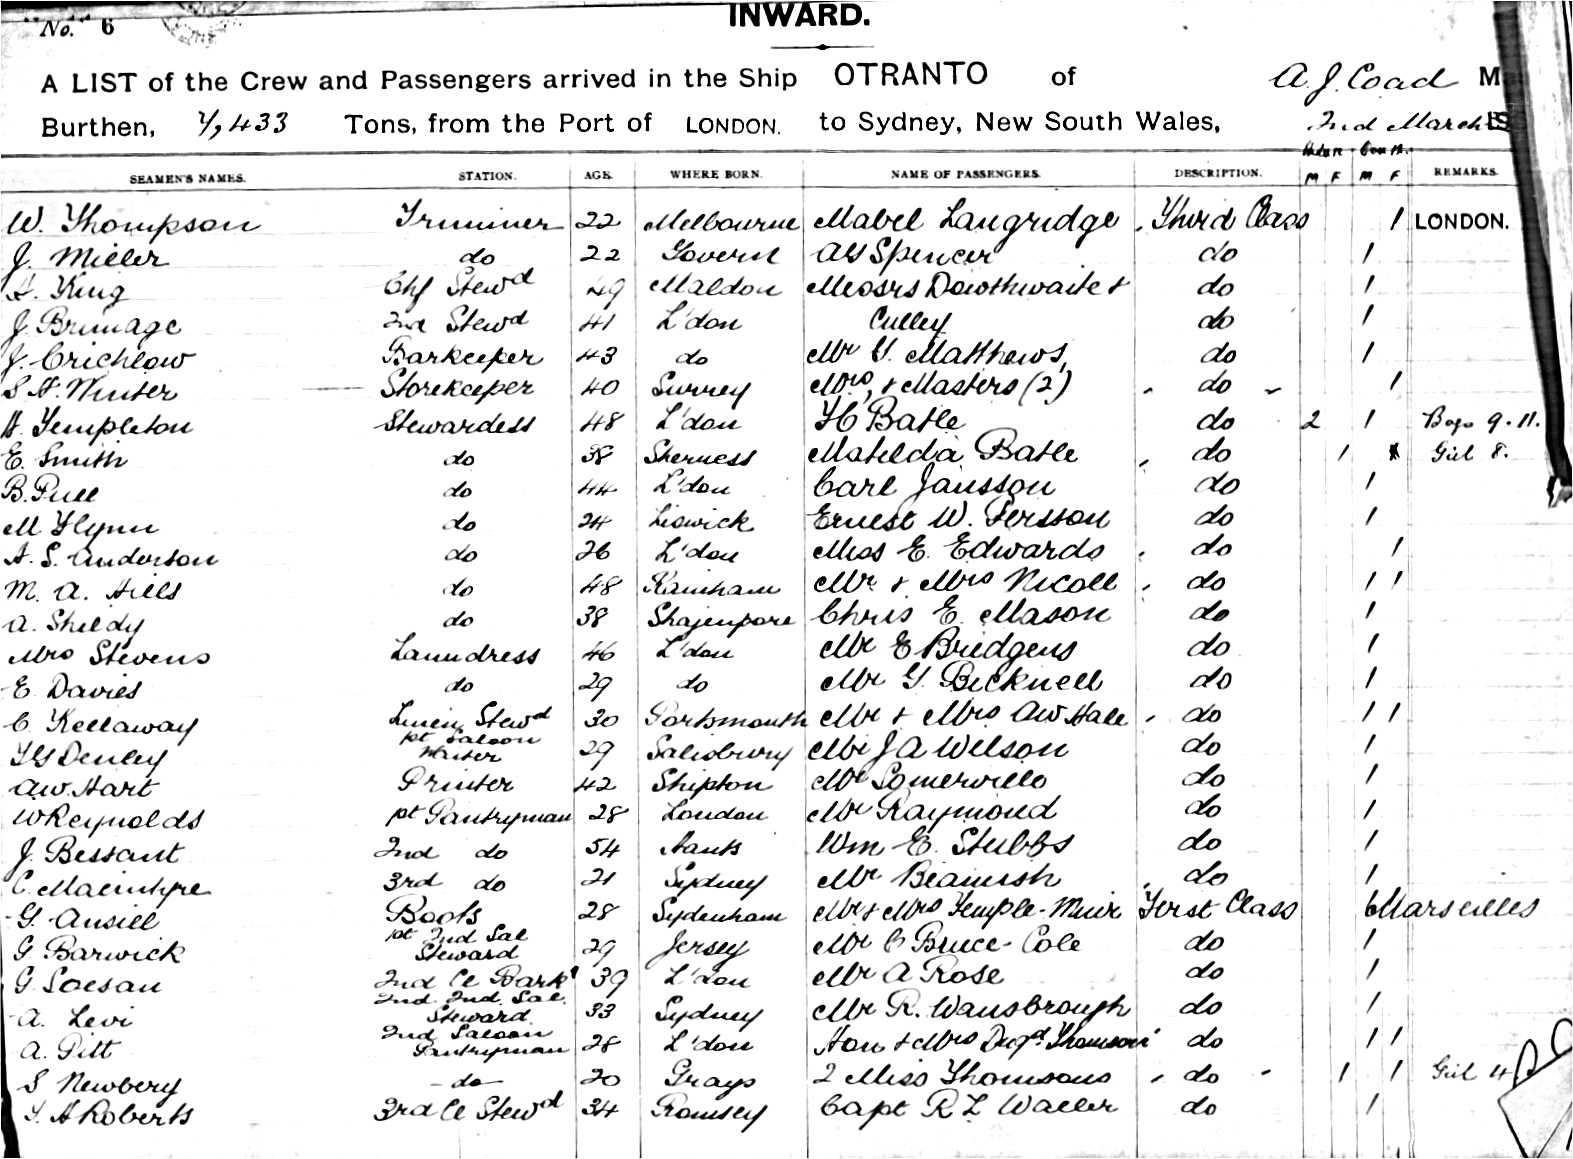 No. 6
INWARD.
A LIST of the Crew and Passengers arrived in the Ship OTRANTO of A. J. Coad
Burthen, 7,433 Tons, from the Port of LONDON. to Sydney, New South Wales, 2nd March
SEAMEN'S NAMES. STATION. AGE. WHERE BORN. NAME OF PASSENGERS. DESCRIPTION. M F M F REMARKS.
W. Thompson Trimmer 22 Melbourne Mabel Langridge Third Class 1 LONDON.
J. Miller do 22 Govern AG Spencer do 1
A. King Chf Stewd 49 Maldon Messrs Dowthwaite & do 1
J. Brumage 2nd Stewd 41 L'don Culley do 1
J. Crichlow Barkeeper 43 do Mr G. Matthews, do 1
S. H. Winter Storekeeper 40 Surrey Mrs, & Masters (2) do 1
H. Templeton Stewardess 48 L'don H C Batle do 2 1 Boys 9. 11.
E. Smith do 38 Sherness Matilda Batle do 1 Girl 8.
B. Pull do 44 L'don Carl Jansson do 1
M Flynn do 24 Liswick Ernest W. Persson do 1
A. S. Anderson do 26 L'don Miss E. Edwards do 1
M. A. Hills do 48 Rainham Mr & Mrs Nicoll do 1 1
A. Sheldy do 38 Shajenpore Chris E. Mason do 1
Mrs Stevens Laundress 46 L'don Mr E Bridgens do 1
E. Davies do 29 do Mr G. Bicknell do 1
C. Kellaway Linen Stewd 30 Portsmouth Mr & Mrs AW Hale do 1 1
TG Denley pt Saloon Waiter 29 Salisbury Mr J A Wilson do 1
A.W. Hart Printer 42 Shipton Mr Somerville do 1
W Reynolds pt Pantryman 28 London Mr Raymond do 1
J. Bessant 2nd do 54 Hants Wm E. Stubbs do 1
C. Macintyre 3rd do 21 Sydney Mr Beamish do 1
G. Ansill Boots 28 Sydenham Mr & Mrs Temple-Muir First Class Marseilles
G Barwick pt 2nd Sal Steward 29 Jersey Mr C Bruce-Cole do 1
G. Soesan 2nd Cl Bark 39 L'don Mr A Rose do 1
A. Levi 2nd. 2nd. Sal. Steward 33 Sydney Mr R. Wansbrough do 1
A. Pitt 2nd Saloon Pantryman 28 L'don Hon & Mrs Dugd Thomson do 1 1
S Newbery do 20 Grays 2 Miss Thomsons do 1 1 Girl 4
T. A Roberts 3rd Cl Stewd 34 Romsey Capt R L Waller do 1